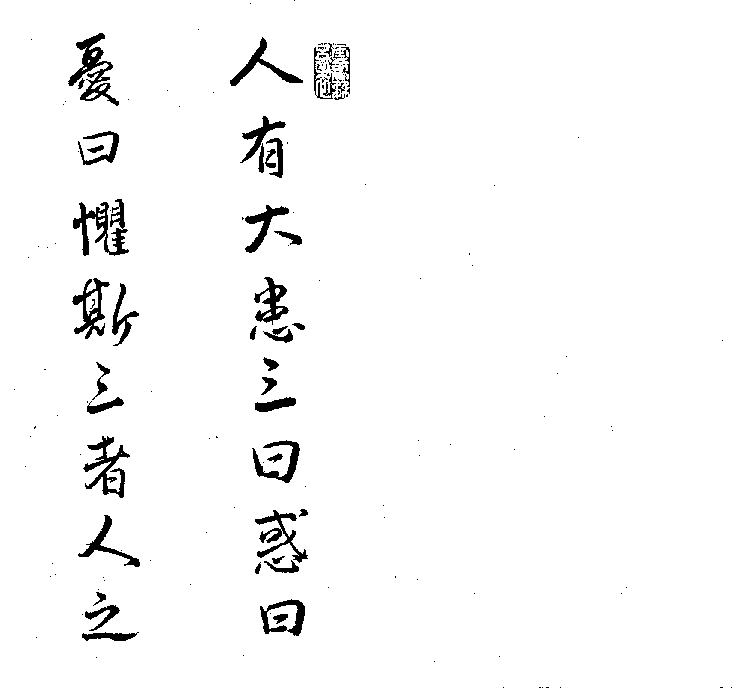 人有大患三曰惑曰
憂曰懼斯三者人之